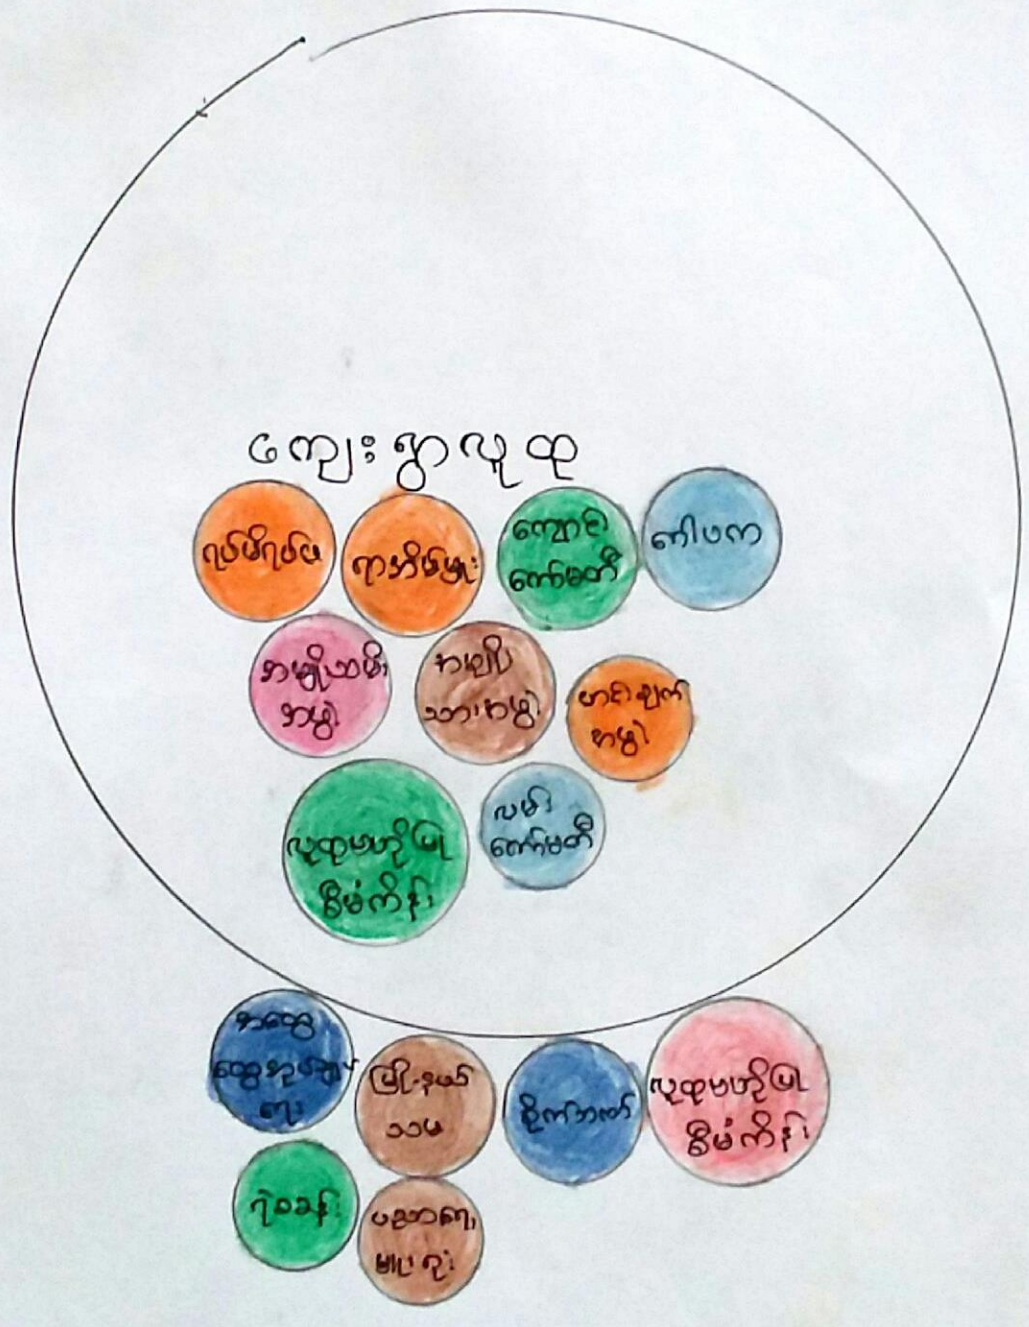 ကျေးရွာလူထု
ရပ်မိရပ်ဖ
ရာအိမ်မှူး
ကျောင်း
ကော်မတီ
ကာပက
အမျိုးသမီး
အဖွဲ့
အမျိုး
သားအဖွဲ့
ဟင်းချက်
အဖွဲ့
လူထုဗဟိုပြု
စီမံကိန်း
လမ်း
ကော်မတီ
အထွေ
ထွေအုပ်ချုပ်
ရေး
မြို့နယ်
သမ
စိုက်ဘဏ်
လူထုဗဟိုပြု
စီမံကိန်း
ရဲစခန်း
ပညာရေး
မှူးရုံး